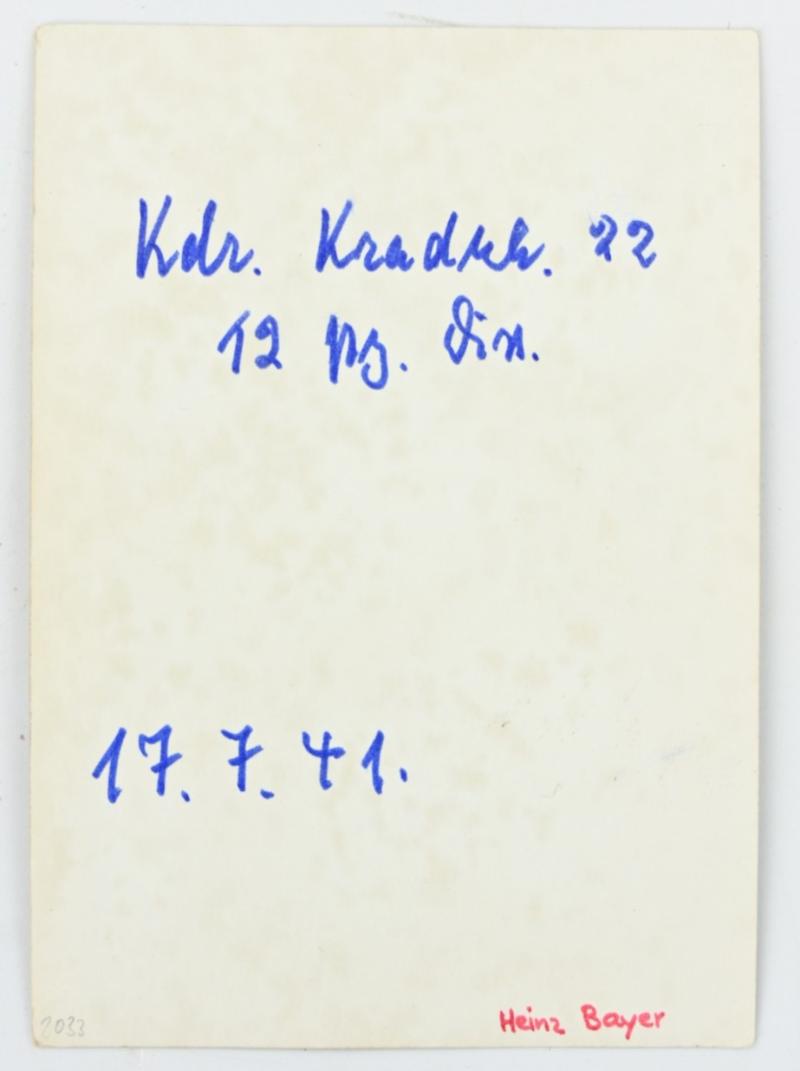 Kdr. Kradsch. 22
12 pz. Div.
17. 7. 41.
2033
Heinz Bayer